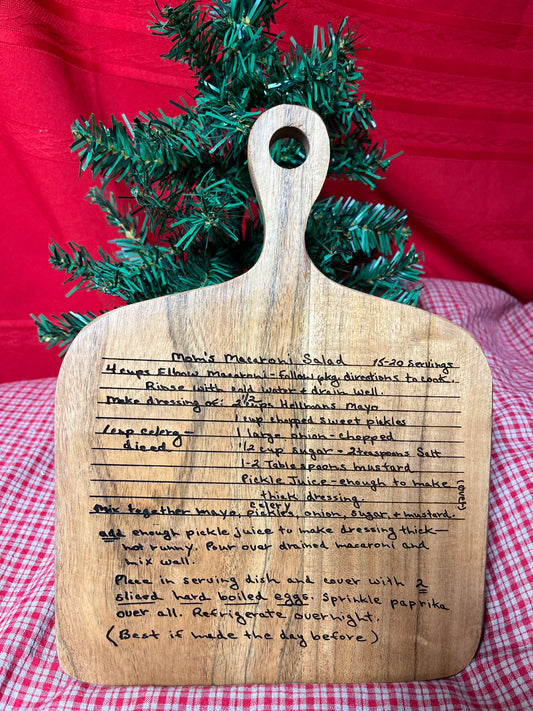 Mom's Macaroni Salad 15-20 Servings
4 cups Elbow Macaroni - Follow pkg directions to cook.
Rinse with cold water & drain well.
Make dressing of: 2 1/2 cups Hellmans Mayo
1 cup chopped sweet pickles
1 cup celery - 1 large onion - chopped
diced 1/2 cup sugar - 2 teaspoons Salt
1-2 Tablespoons mustard
Pickle Juice - enough to make
thick dressing.
(over)
celery
Mix together mayo, pickles, onion, sugar, & mustard.
add enough pickle juice to make dressing thick -
not runny. Pour over drained macaroni and
mix well.
Place in serving dish and cover with 2
sliced hard boiled eggs. Sprinkle paprika
over all. Refrigerate overnight.
(Best if made the day before)